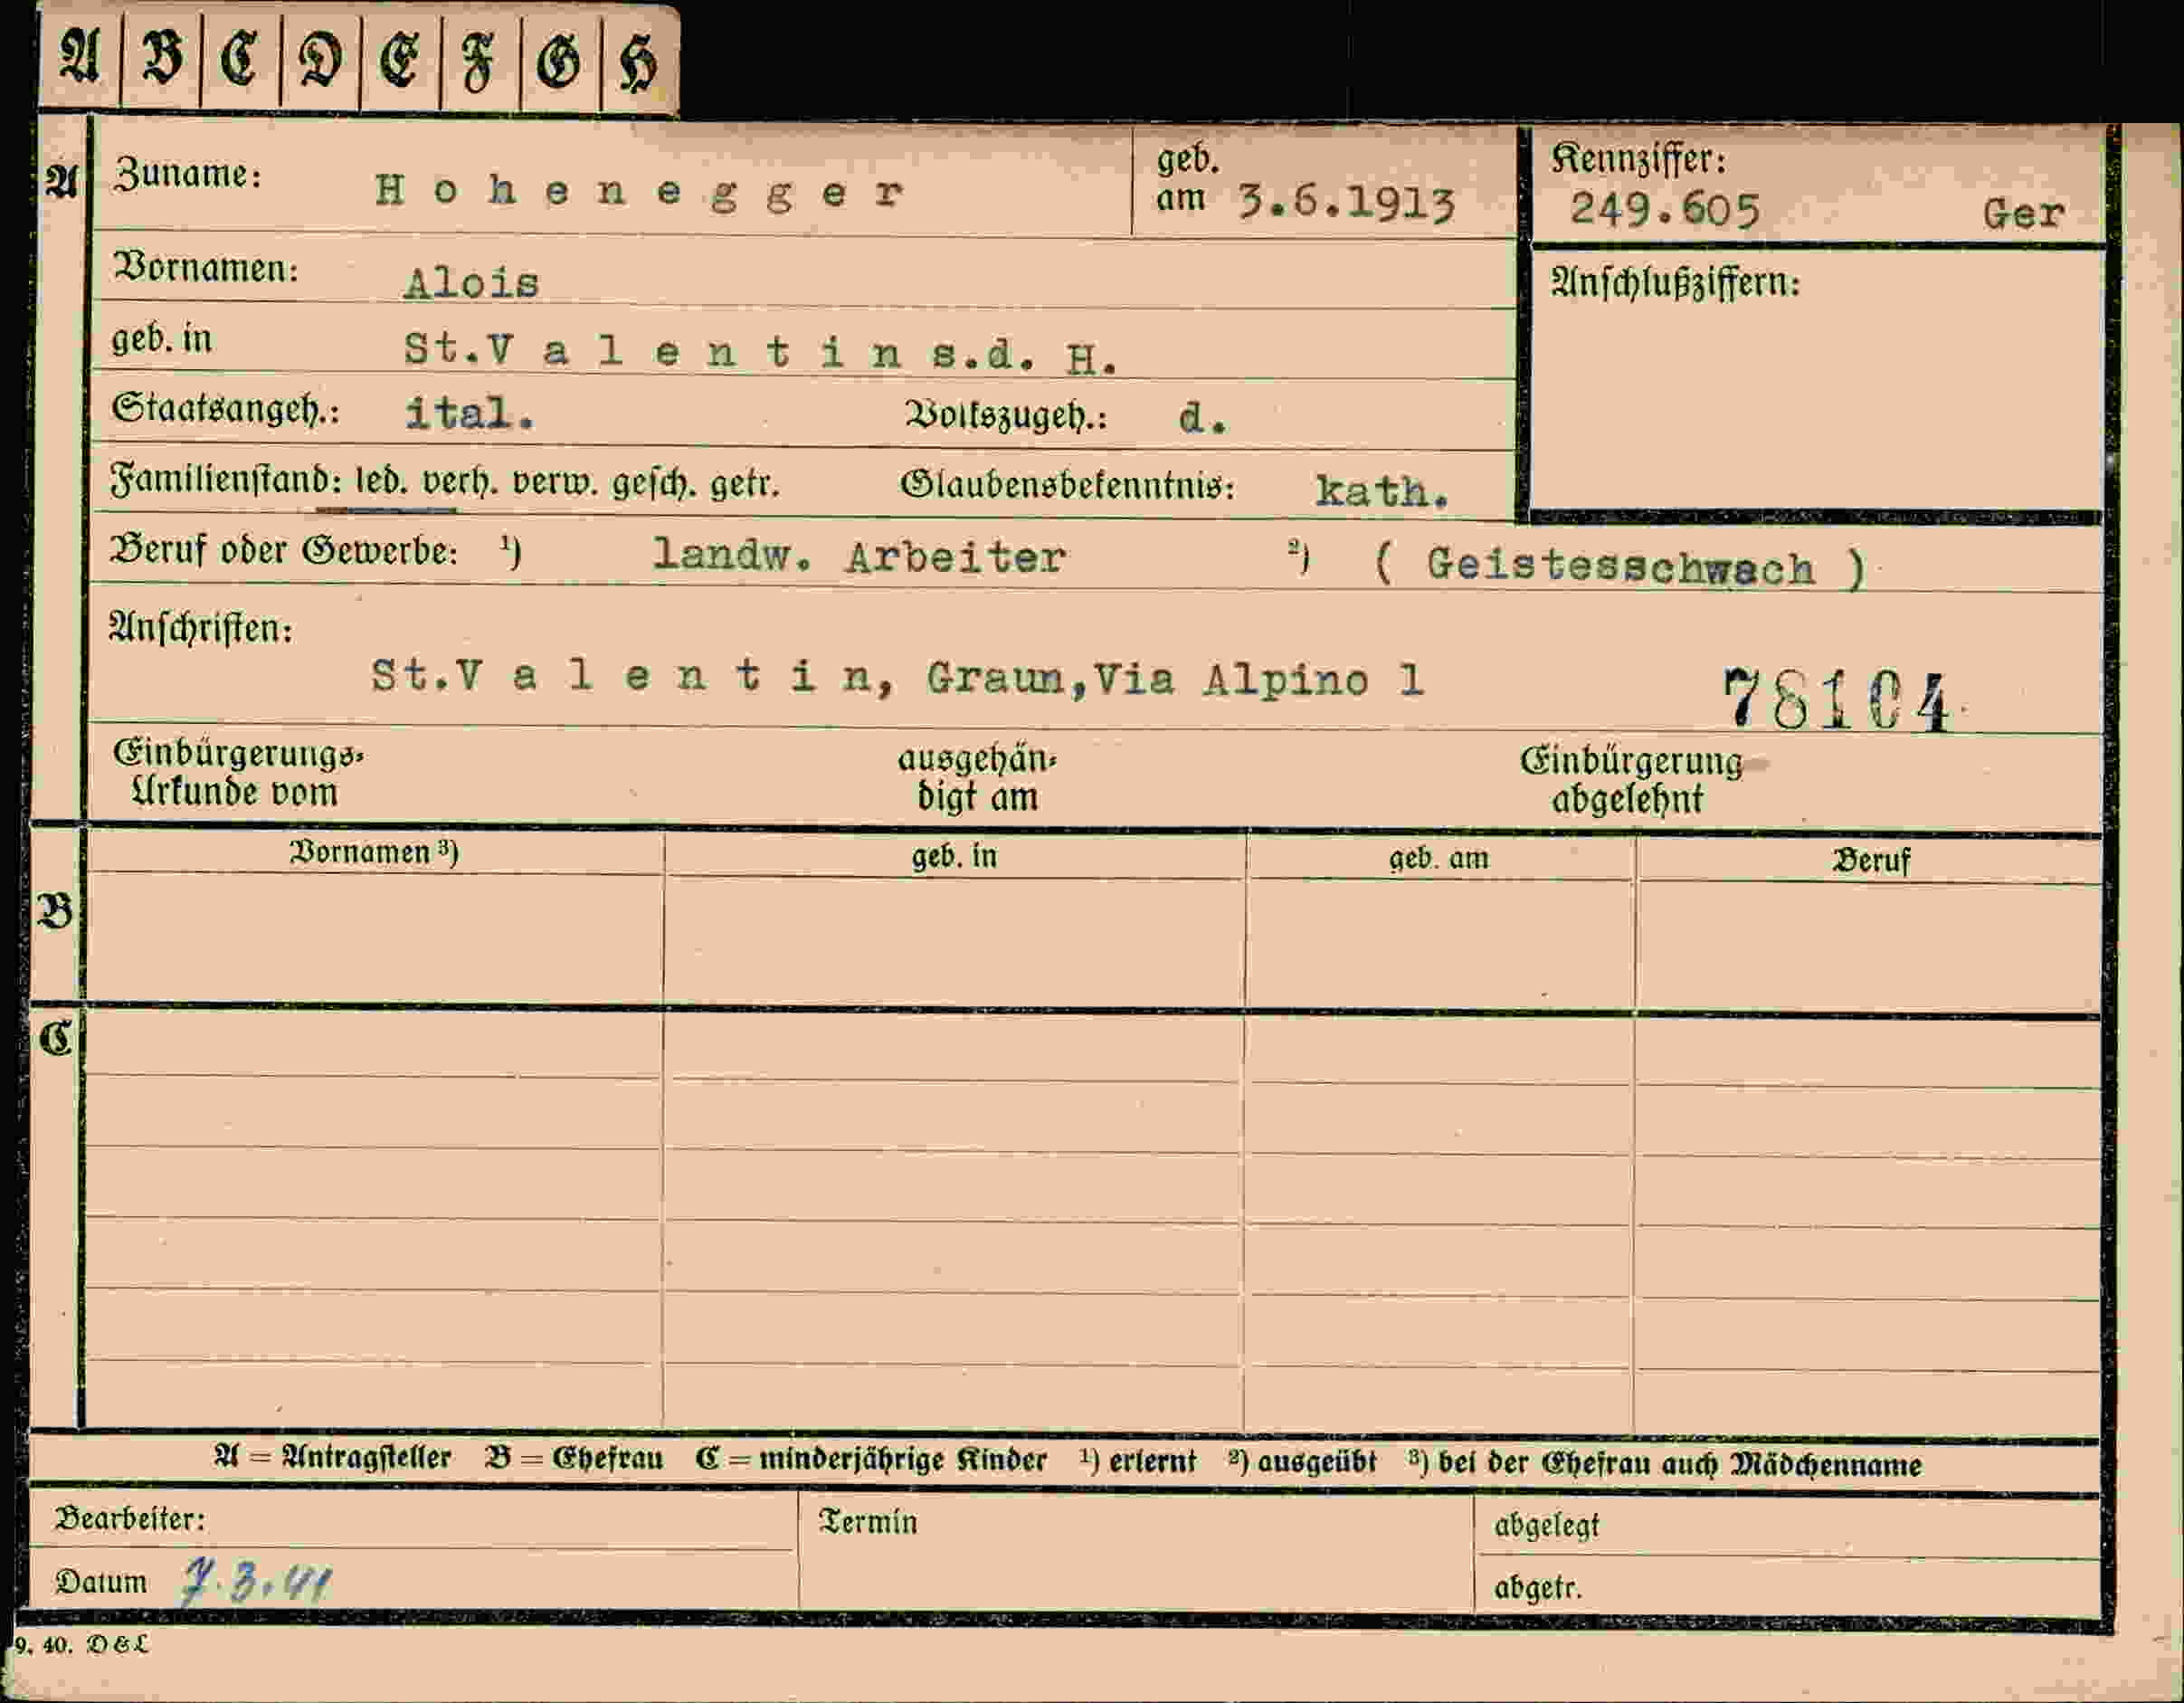 A B C D E F G H
A Zuname: Hohenegger geb. am 3.6.1913 Kennziffer: 249.605 Ger
Vornamen: Alois Anschlußziffern:
geb. in St.Valentin s.d. H.
Staatsangeh.: ital. Volkszugeh.: d.
Familienstand: led. verh. verw. gesch. getr. Glaubensbekenntnis: kath.
Beruf oder Gewerbe: ¹) landw. Arbeiter ²) ( Geistesschwach )
Anschriften:
St.Valentin, Graun,Via Alpino 1 78104
Einbürgerungs- Urkunde vom ausgehän- digt am Einbürgerung abgelehnt
Vornamen ³) geb. in geb. am Beruf
B
C
A = Antragsteller B = Ehefrau C = minderjährige Kinder ¹) erlernt ²) ausgeübt ³) bei der Ehefrau auch Mädchenname
Bearbeiter: Termin abgelegt
Datum 7.3.41 abgetr.
9. 40. D & L